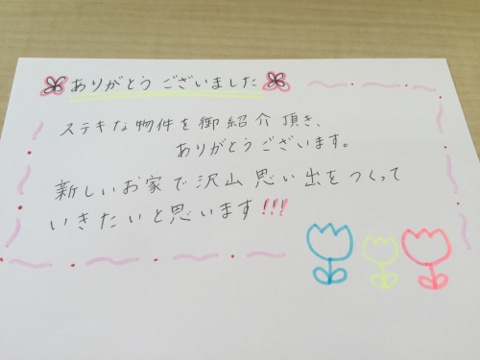 ありがとうございました
ステキな物件を御紹介頂き、
ありがとうございます。
新しいお家で沢山思い出をつくって
いきたいと思います!!!